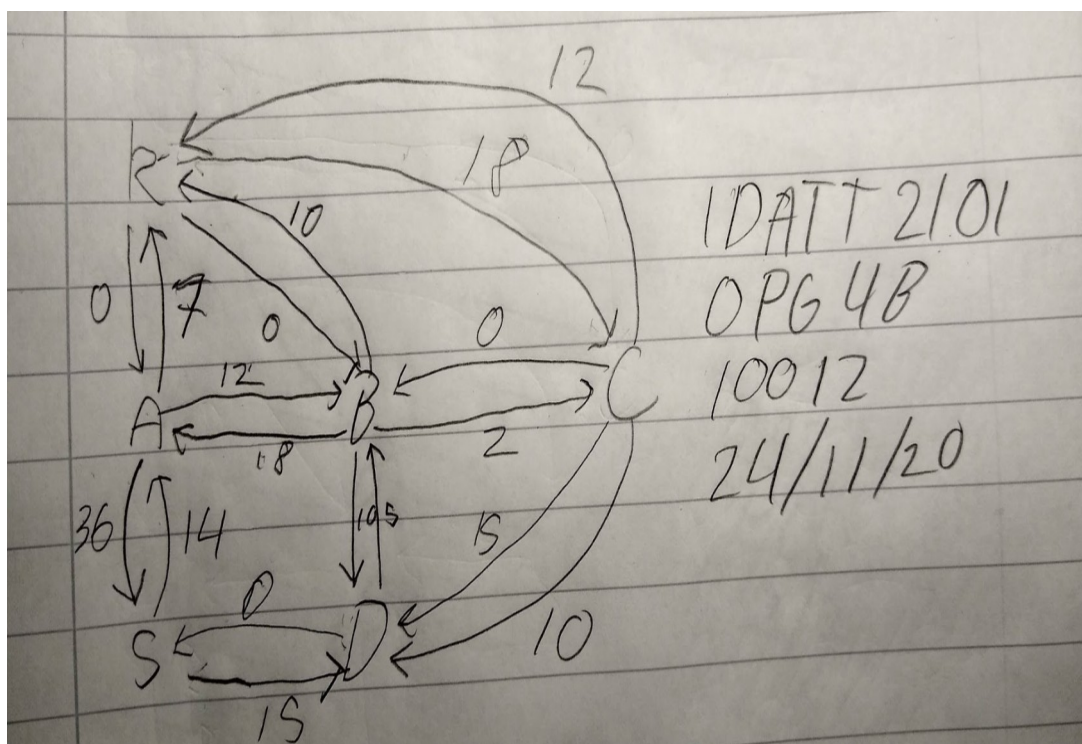 12
K
18
10
0
7
0
0
12
A
B
C
18
2
36
14
10 5
15
0
S
D
10
15
IDATT 2101
OPG 4B
10012
24/11/20